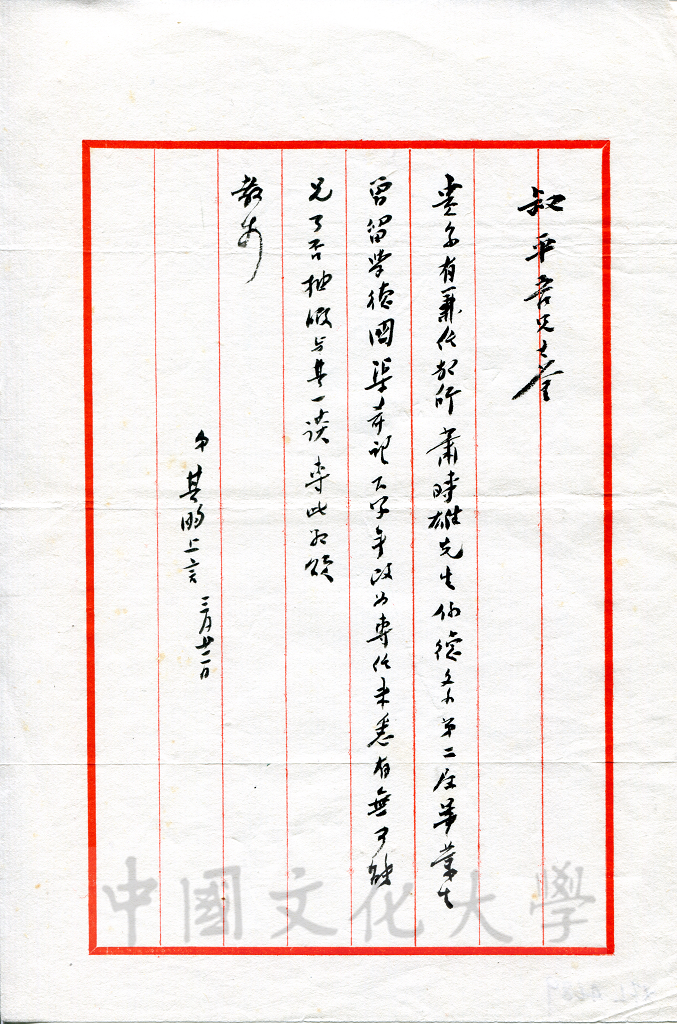 叔平吾兄大鑒
貴系有兼任教師蕭時雄先生係德文系第二屆畢業生
曾留學德國渠希望下學年改為專任未悉有無可能
兄可否抽暇與其一談專此即頌
教安
弟其昀上言 三月廿二日
中國文化大學